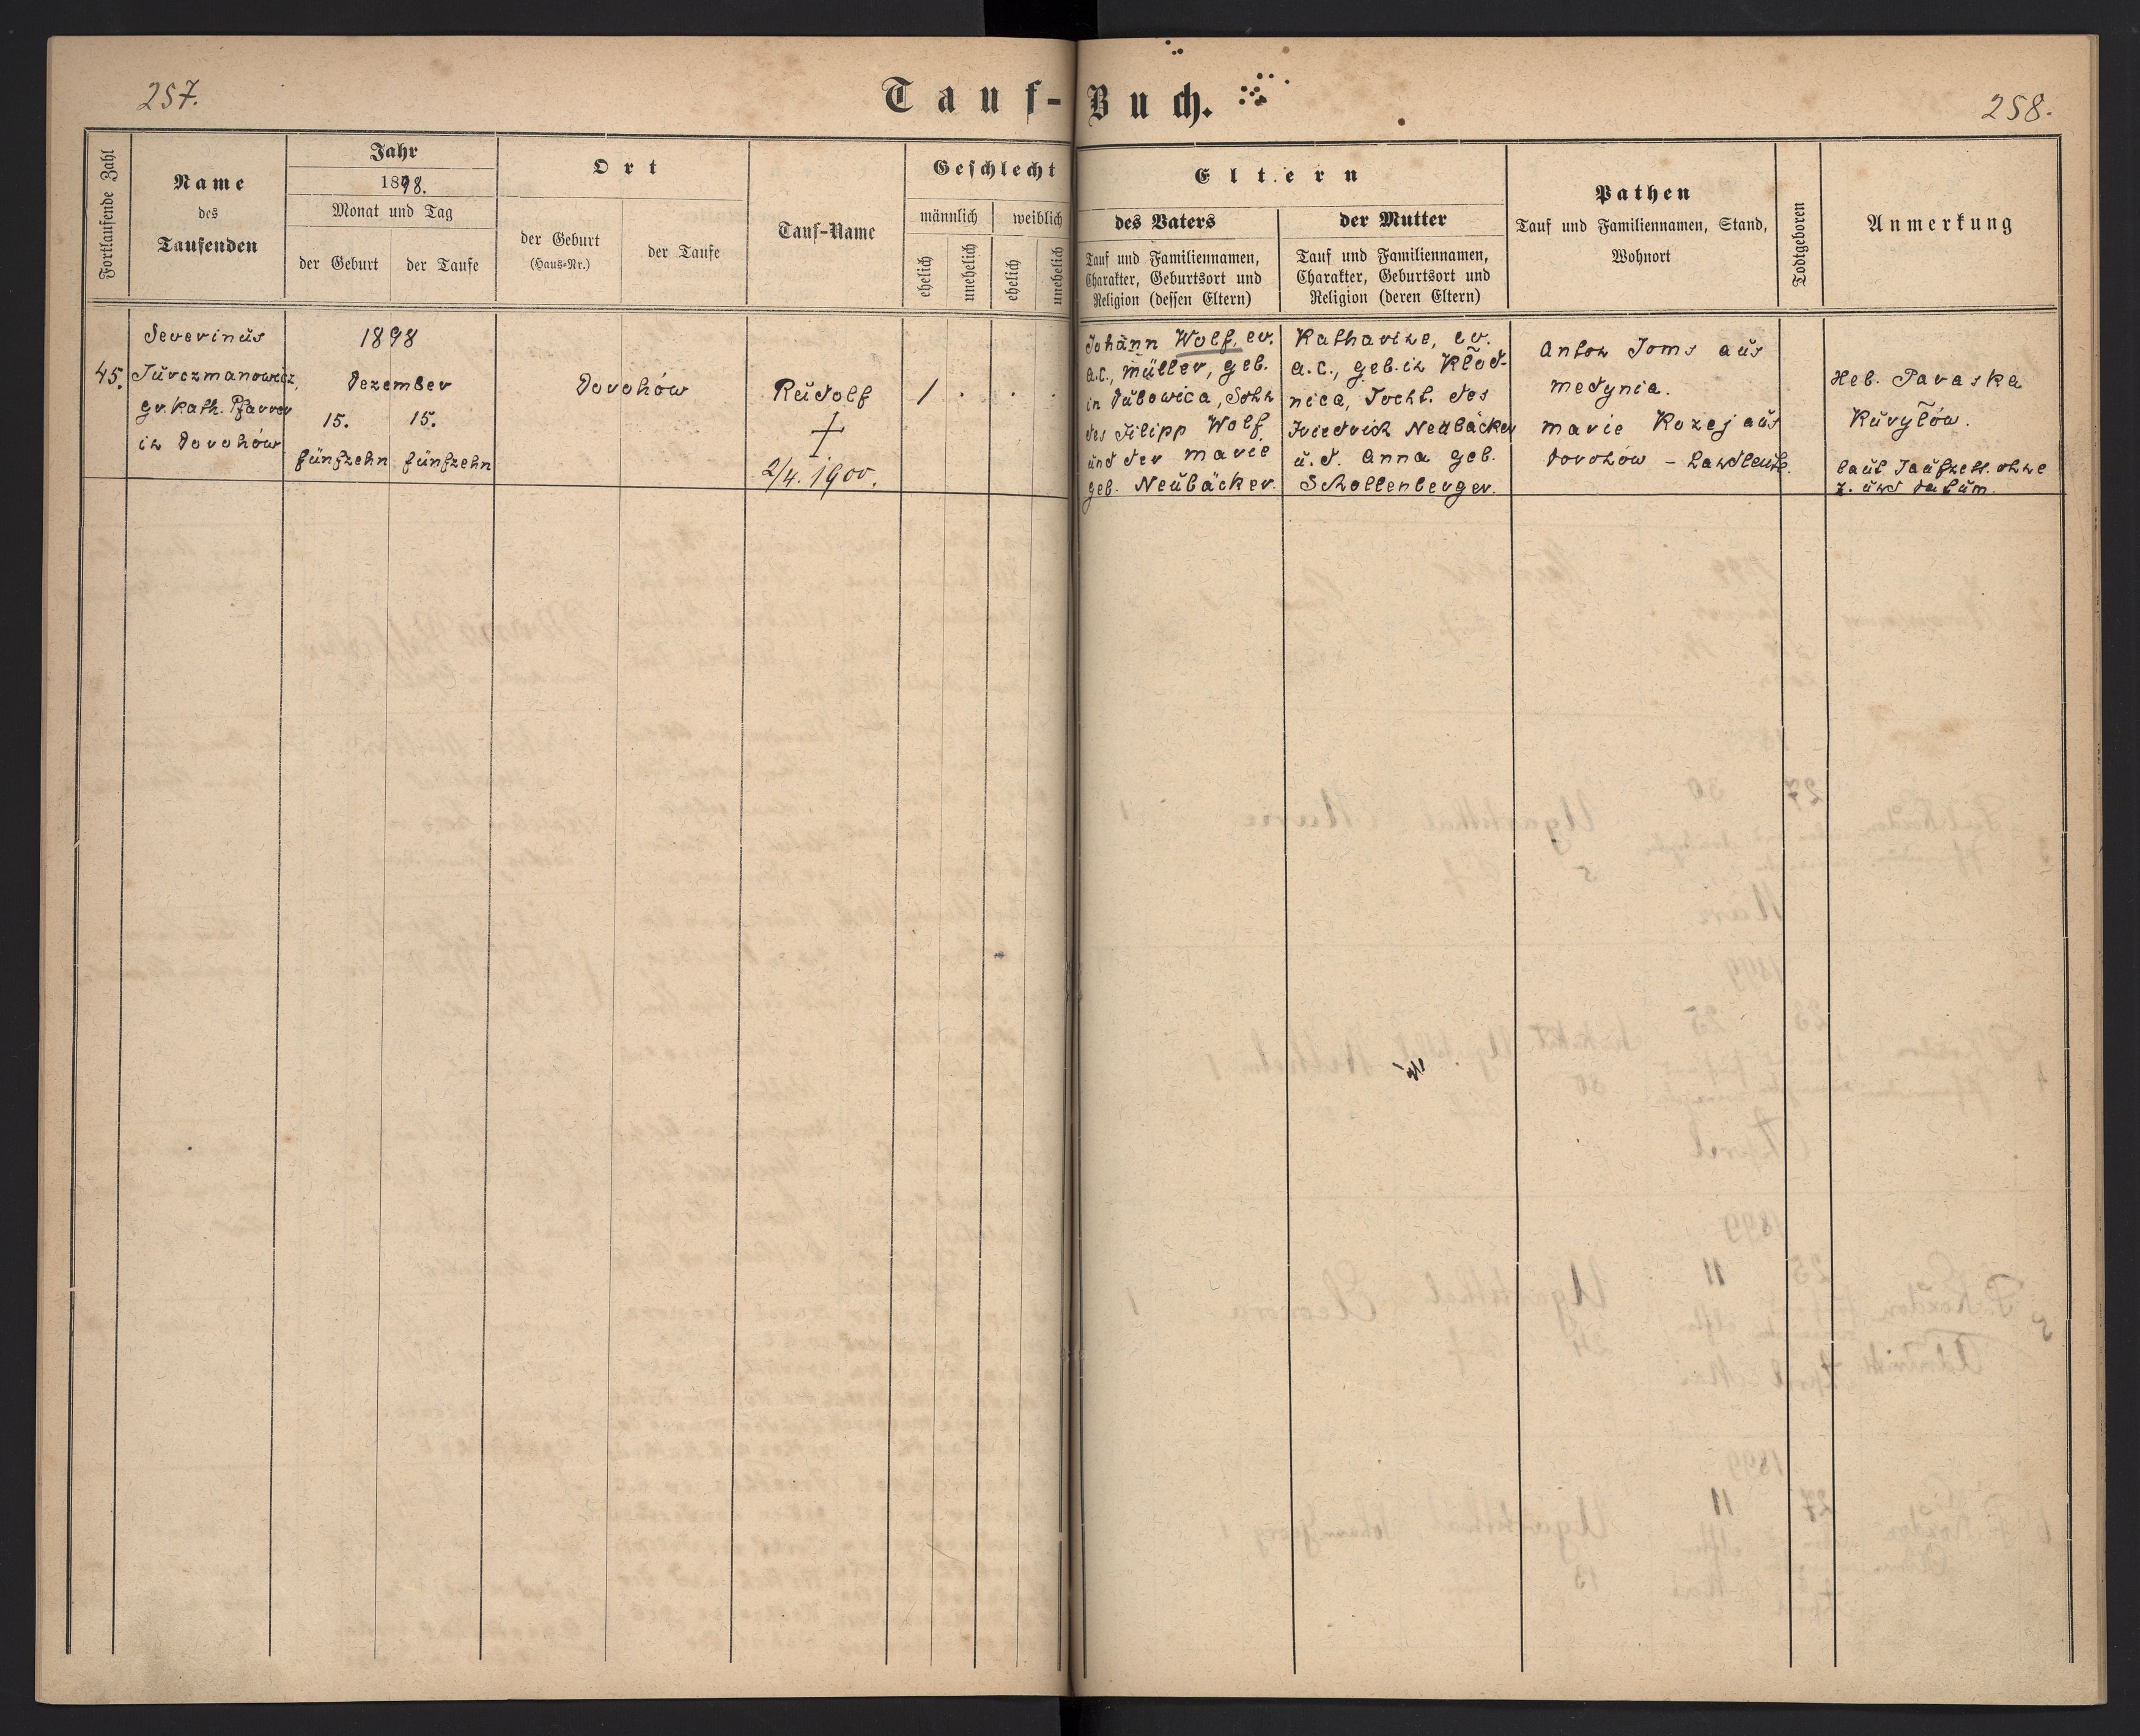 257.
Tauf-Buch.
258.
Fortlaufende Zahl
Name
des
Taufenden
Jahr
1898.
Monat und Tag
der Geburt
der Taufe
Ort
der Geburt
(Haus-Nr.)
der Taufe
Tauf-Name
Geschlecht
männlich
weiblich
ehelich
unehelich
ehelich
unehelich
Eltern
des Vaters
Tauf und Familiennamen,
Charakter, Geburtsort und
Religion (dessen Eltern)
der Mutter
Tauf und Familiennamen,
Charakter, Geburtsort und
Religion (deren Eltern)
Pathen
Tauf und Familiennamen, Stand,
Wohnort
Todtgeboren
Anmerkung
45.
Severinus
Jurczmanowicz,
gr. kath. Pfarrer
in Dorohów
1898
Dezember
15. 15.
fünfzehn fünfzehn
Dorohów
Rudolf
+
2/4. 1900.
1 . . .
Johann Wolf, ev.
A.C., Müller, geb.
in Dubowica, Sohn
des Filipp Wolf
und der Marie
geb. Neubäcker.
Katharine, ev.
A.C., geb. in Klod-
nica, Tocht. des
Friedrich Neubäcker
u. d. Anna geb.
Schollenberger.
Anton Toms aus
Medynia.
Marie Kozej aus
Dorohow - Landleute.
Heb. Paraska
Kuryłów.
laut Taufzett. ohne
Z. und Datum.